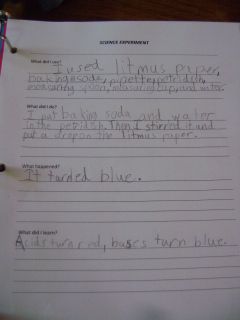 SCIENCE EXPERIMENT
What did I use?
I used litmus paper,
baking soda, pipette, petridish,
measuring spoon, measuring cup, and water.
What did I do?
I put baking soda and water
in the petridish. Then I stirred it and
put a drop on the litmus paper.
What happened?
It turded blue.
What did I learn?
Acids turn red, bases turn blue.